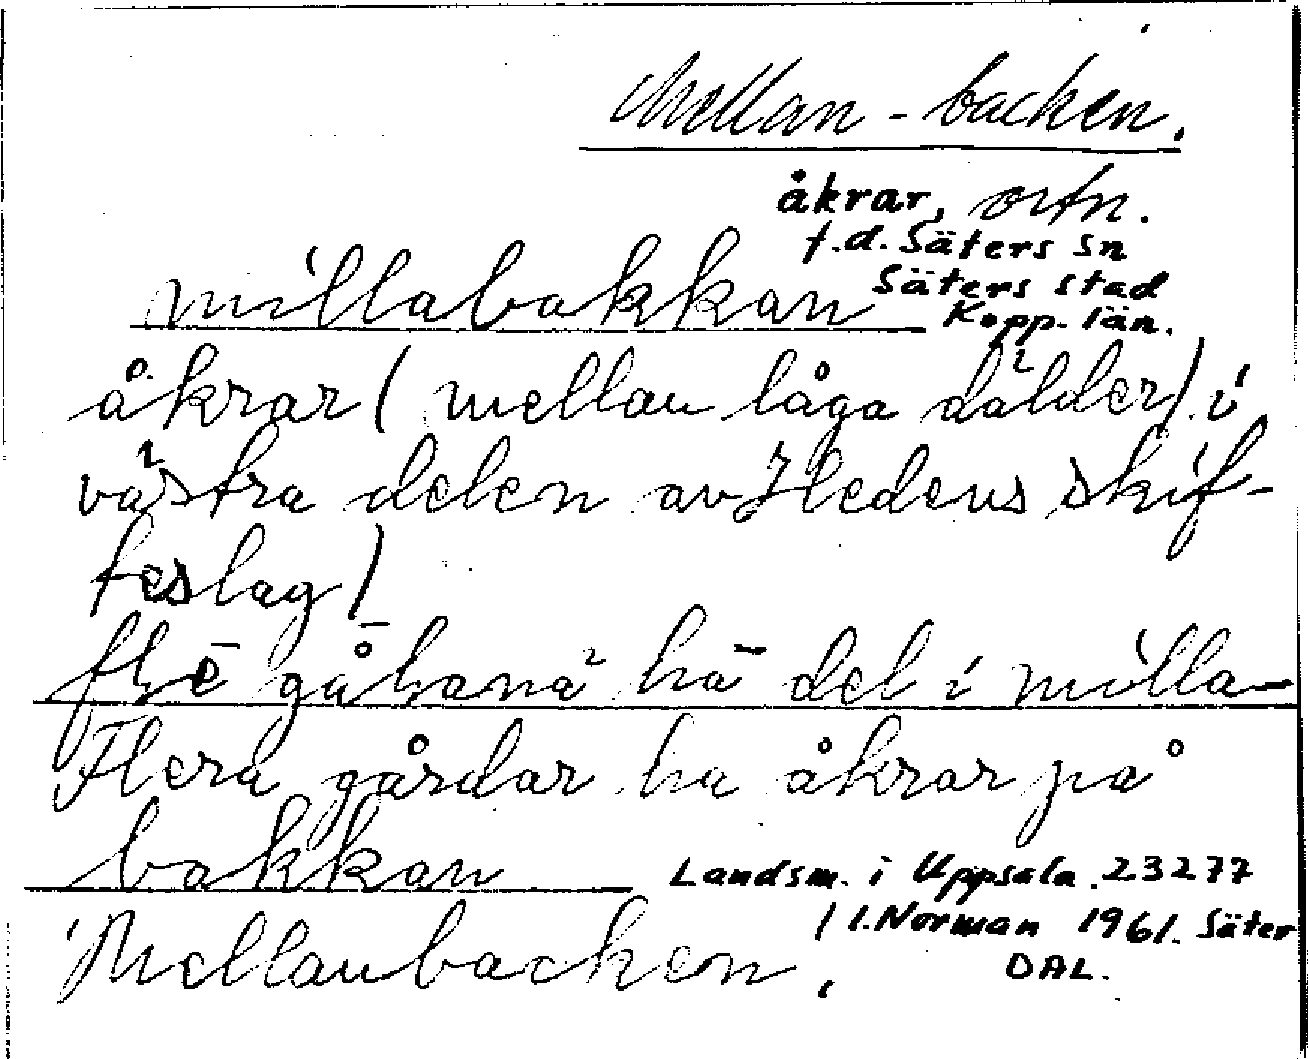 Mellan-backen.
åkrar, ortn.
f.d. Säters sn
Säters stad
Kopp. län.
millabakkan
åkrar (mellan låga dälder) i
västra delen av Hedens skif-
teslag)
gå̄hanä hā del i milla-
Flera gårdar ha åkrar på
bakkan
Mellanbacken.
Landsm. i Uppsala. 23277
/ I. Norman 1961. Säter
DAL.